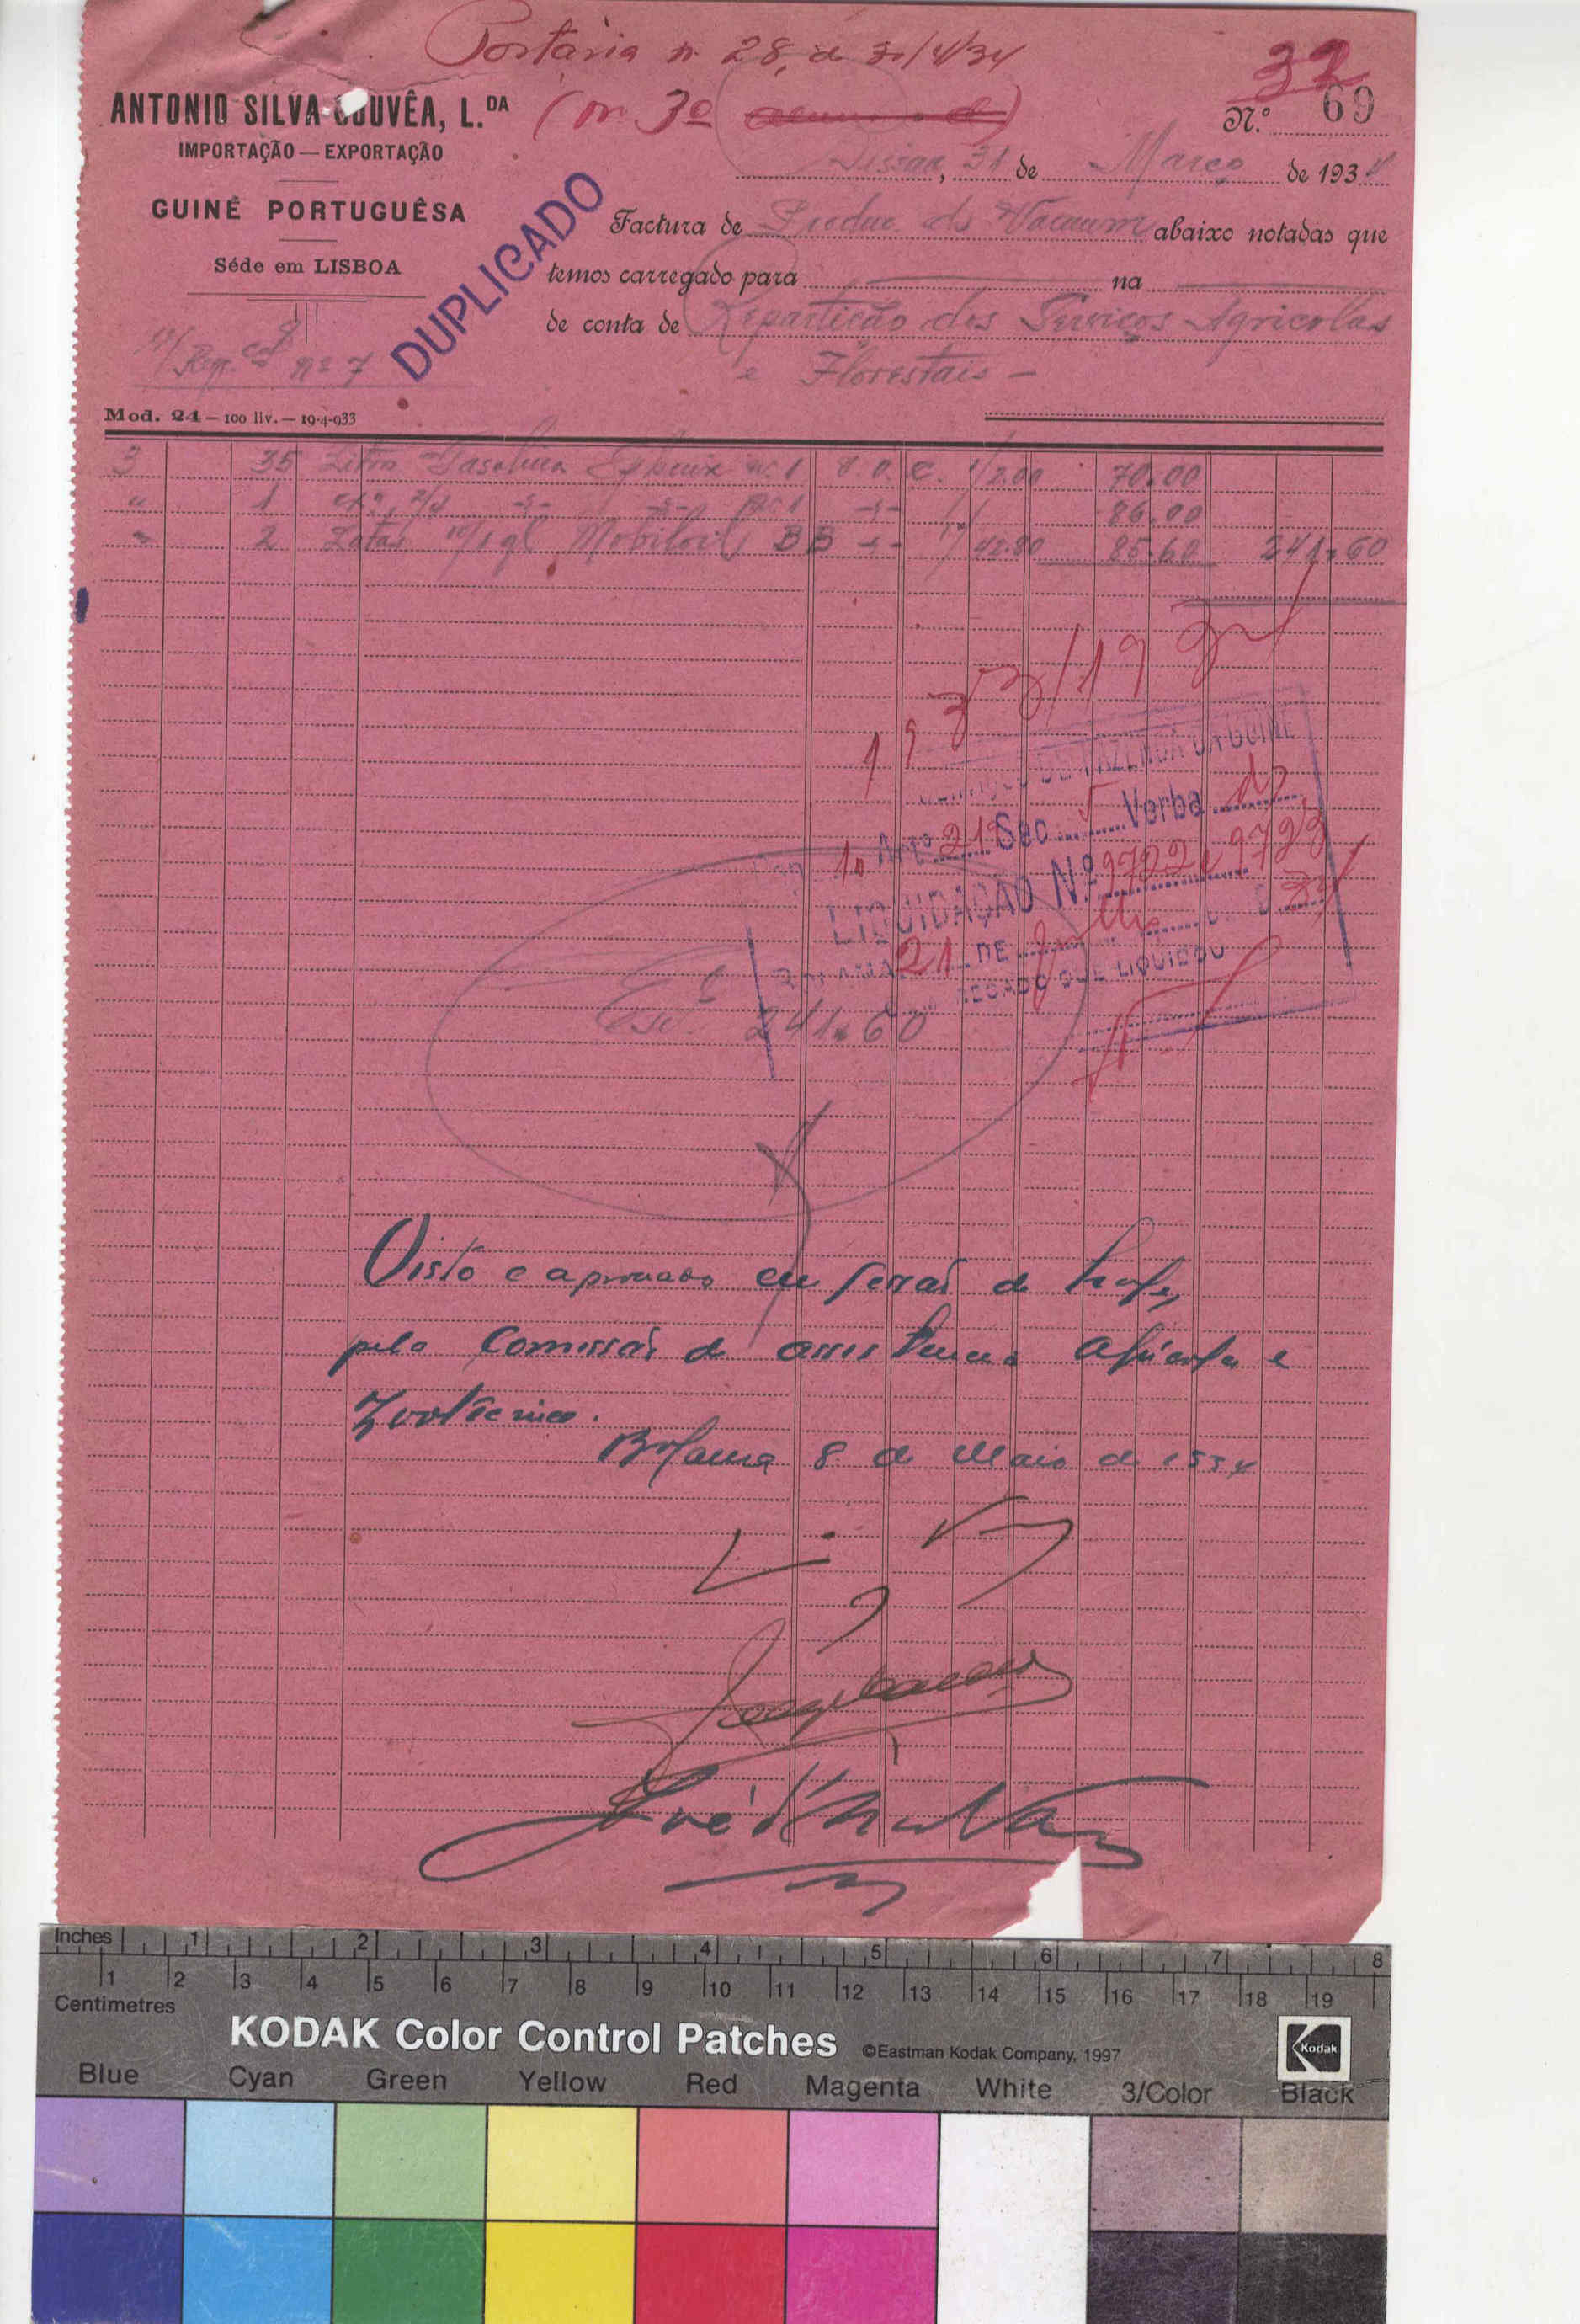 Portaria nº 28, de 30/4/34
32
ANTONIO SILVA GOUVÊA, L.DA
(nº 3º
N.º 69
IMPORTAÇÃO — EXPORTAÇÃO
Bissau, 31 de Março de 1934
GUINÉ PORTUGUÊSA
DUPLICADO
Factura de Produc. da Vacuum abaixo notadas que
Séde em LISBOA
temos carregado para na
de conta de Repartição dos Serviços Agricolas
e Florestais —
nº 7
Mod. 24 — 100 liv. — 19-4-933
3 35 Litro Gasolina nº 1 2.00 70.00
" 1 cxª 2/4 -"- -"- nº 1 -"- 86.00
" 2 Latas gl Mobiloil BB -"- 42.80 85.60 241.60
1933/1934
SERVIÇOS DE FAZENDA DA GUINÉ
Cap 10 Artº 219 Sec 5 Verba d)
LIQUIDAÇÃO Nº 9722 e 9723
BOLAMA 21 DE DE 34
O ENCARREGADO QUE LIQUIDOU
Esc. 241.60
Visto e aprovado em sessão de hoje,
pela Comissão de assistencia agricola e
Zootecnica.
Bolama 8 de Maio de 1934
Inches 1 2 3 4 5 6 7 8
1 2 3 4 5 6 7 8 9 10 11 12 13 14 15 16 17 18 19
Centimetres
KODAK Color Control Patches ©Eastman Kodak Company, 1997 Kodak
Blue Cyan Green Yellow Red Magenta White 3/Color Black